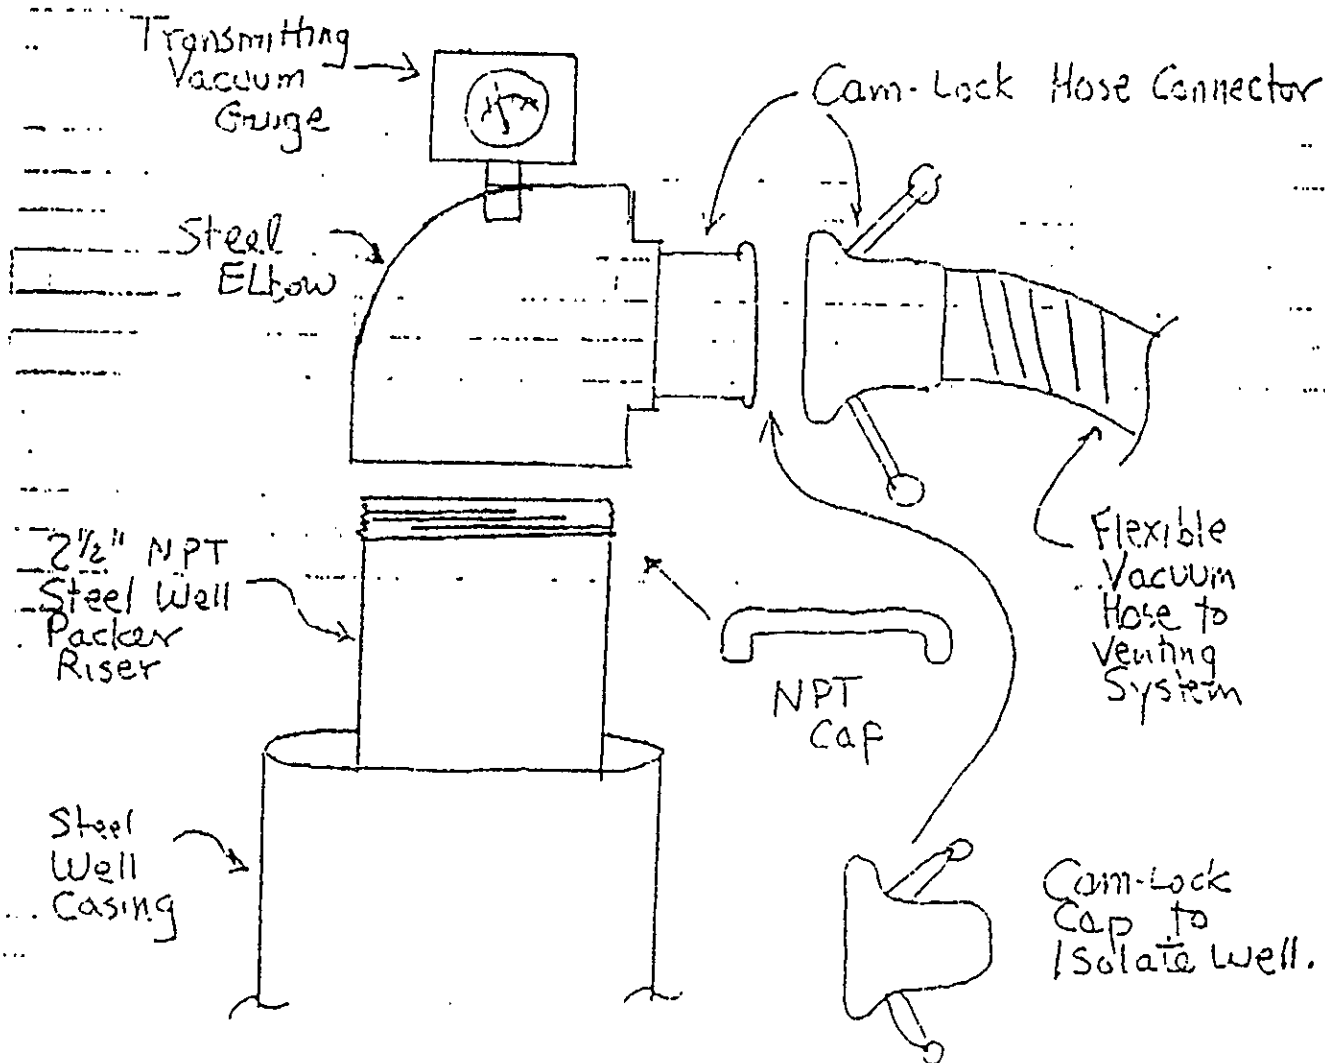 Transmitting
Vacuum
Gauge
Cam-Lock Hose Connector
Steel
Elbow
2 1/2" NPT
Steel Well
Packer
Riser
Flexible
Vacuum
Hose to
Venting
System
NPT
Cap
Steel
Well
Casing
Cam-Lock
Cap to
Isolate Well.